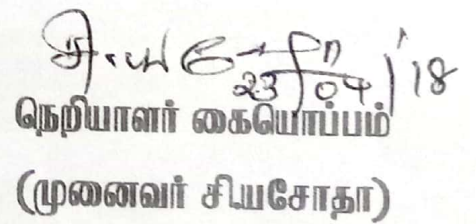 சி.யசோதா
23/04/'18
நெறியாளர் கையொப்பம்
(முனைவர் சி.யசோதா)